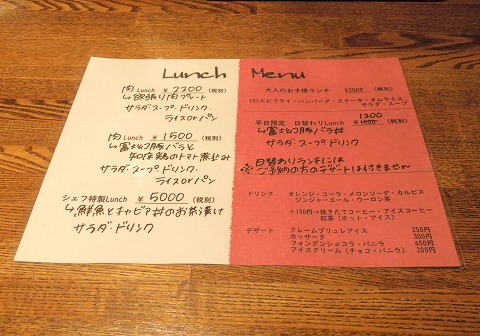 Lunch Menu
肉 Lunch ¥2200 (税別)
↳欲張り肉プレート
サラダ・スープ・ドリンク・
ライスorパン
肉 Lunch ¥1500 (税別)
↳富士幻豚バラと
鶏のトマト煮込み
サラダ・スープ・ドリンク・
ライスorパン
シェフ特製Lunch ¥5000 (税別)
↳鮮魚とキャビア丼のお茶漬け
サラダ・ドリンク
大人のお子様ランチ ¥2000 (税別)
エビフライ・ハンバーグ・ステーキ・オムライス
サラダ・スープ
平日限定 日替わりLunch 1200 (税別)
↳富士幻豚バラ丼
サラダ・スープ・ドリンク
日替わりランチには
※ご予約の方のデザートは付きません
ドリンク オレンジ・コーラ・メロンソーダ・カルピス
ジンジャーエール・ウーロン茶
+150円→挽きたてコーヒー・アイスコーヒー
紅茶(ホット・アイス)
デザート クレームブリュレアイス 250円
カッサータ 300円
フォンダンショコラ・バニラ 450円
アイスクリーム(チョコ・バニラ) 200円